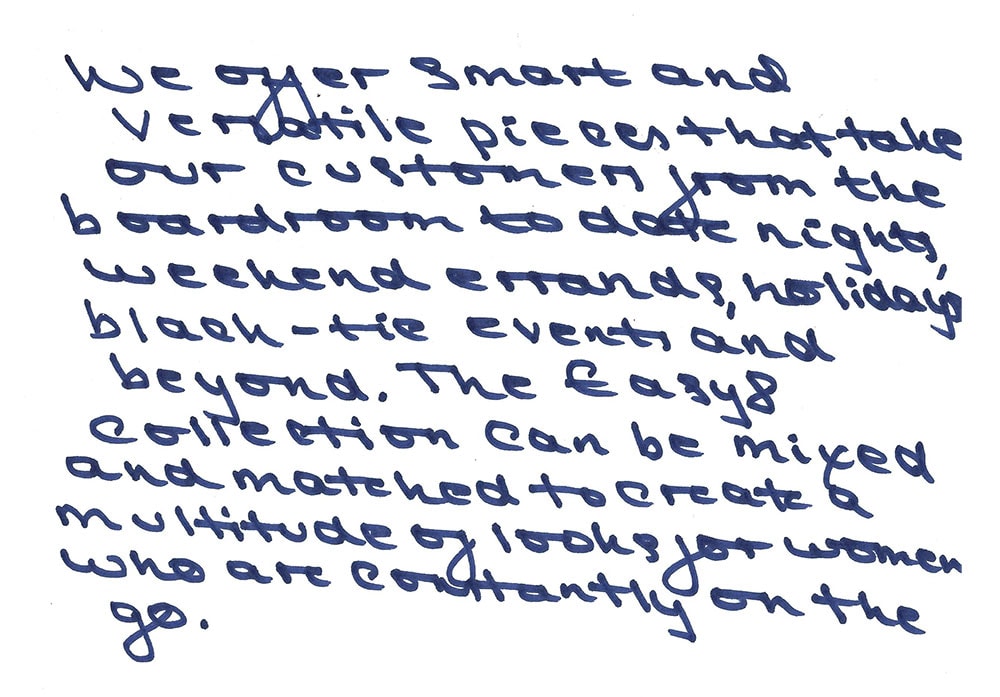 We offer smart and
versatile pieces that take
our customers from the
boardroom to date nights,
weekend errands, holidays
black-tie events and
beyond. The Easy8
collection can be mixed
and matched to create a
multitude of looks for women
who are constantly on the
go.